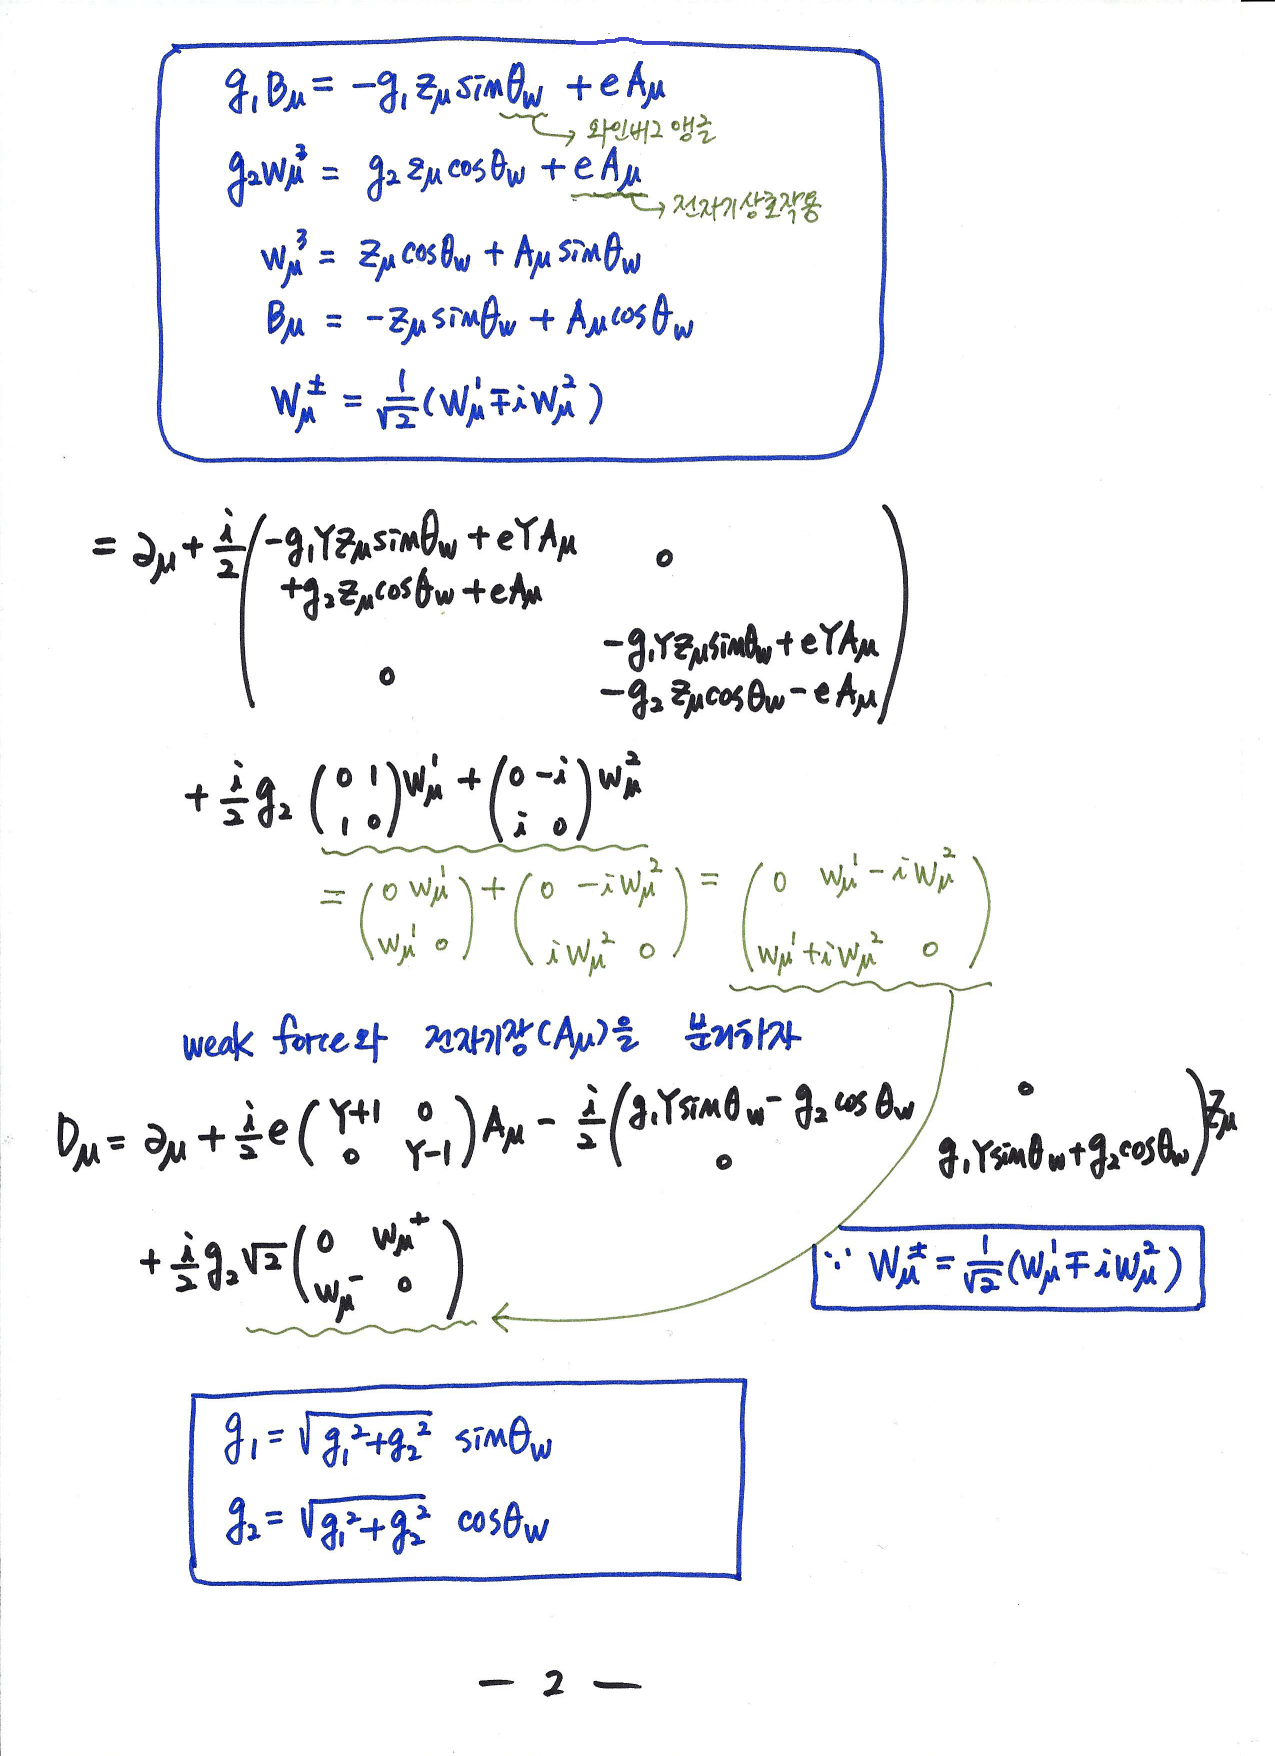 g₁Bμ = -g₁Zμsinθw + eAμ
와인버그 앵글
g₂Wμ³ = g₂Zμcosθw + eAμ
전자기상호작용
Wμ³ = Zμcosθw + Aμsinθw
Bμ = -Zμsinθw + Aμcosθw
Wμ± = 1/√2 (Wμ¹ ∓ iWμ²)
= ∂μ + i/2 ( -g₁YZμsinθw + eYAμ 0
+g₂Zμcosθw + eAμ
-g₁YZμsinθw + eYAμ
0 -g₂Zμcosθw - eAμ )
+ i/2 g₂ (0 1 / 1 0) Wμ¹ + (0 -i / i 0) Wμ²
= (0 Wμ¹ / Wμ¹ 0) + (0 -iWμ² / iWμ² 0) = (0 Wμ¹-iWμ² / Wμ¹+iWμ² 0)
weak force와 전자기장(Aμ)을 분리하자
Dμ = ∂μ + i/2 e (Y+1 0 / 0 Y-1) Aμ - i/2 (g₁Ysinθw - g₂cosθw 0 / 0 g₁Ysinθw + g₂cosθw) Zμ
+ i/2 g₂√2 (0 Wμ⁺ / Wμ⁻ 0)
∵ Wμ± = 1/√2 (Wμ¹ ∓ iWμ²)
g₁ = √(g₁²+g₂²) sinθw
g₂ = √(g₁²+g₂²) cosθw
- 2 -